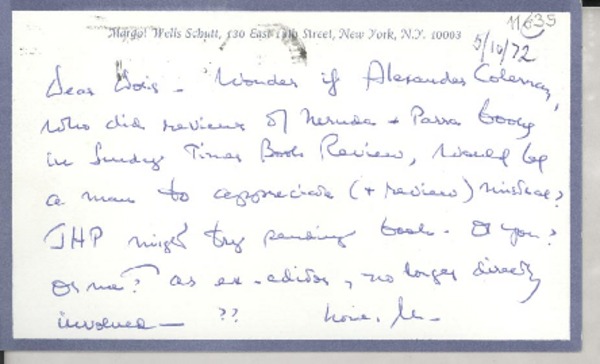 Margot Wells Schutt, 130 East 18th Street, New York, N.Y. 10003
11635
5/10/72
Dear Doris - Wonder if Alexander Coleman,
who did reviews of Neruda + Parra books
in Sunday Times Book Review, would be
a man to appreciate (+ review) Mistral?
JHP might try sending book - Or you?
Or me? as ex-editor, no longer directly
involved — ??